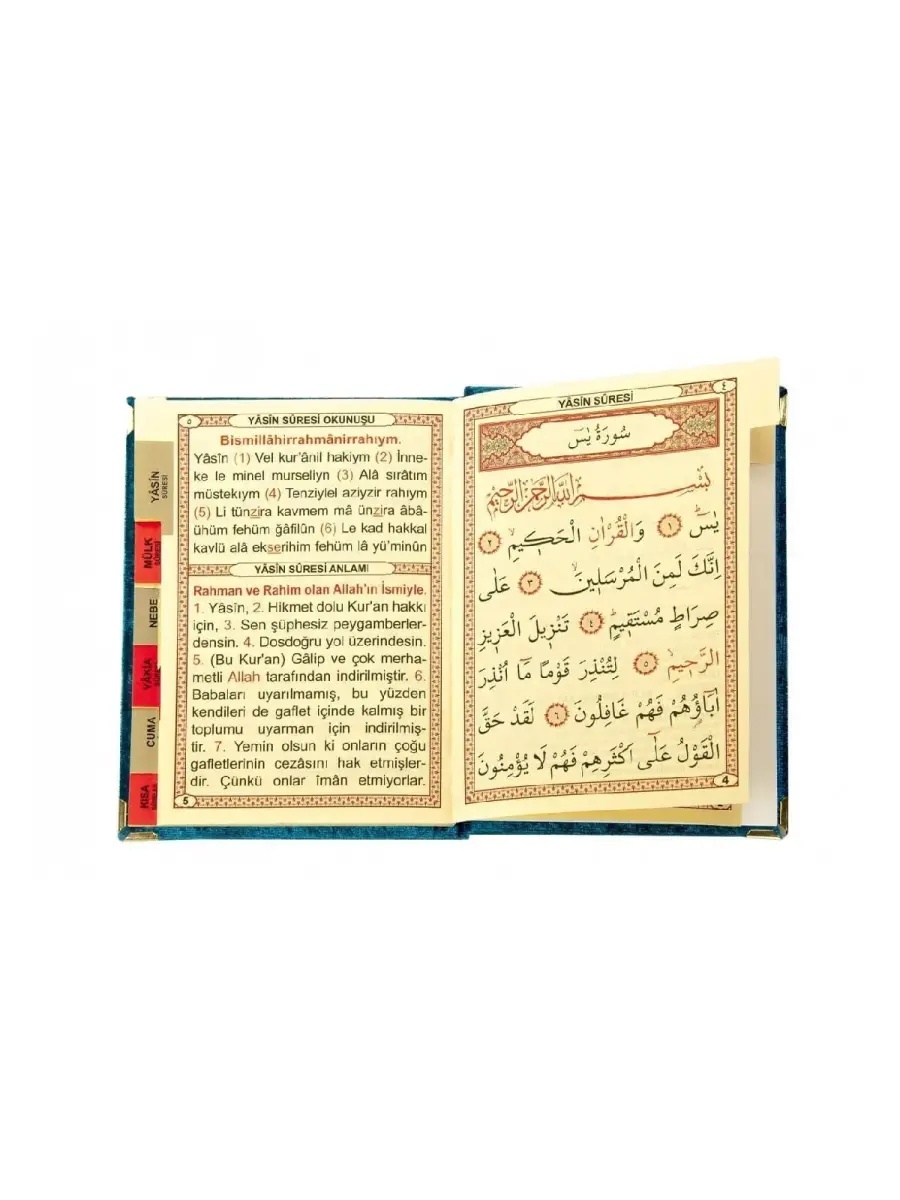 YÂSİN
SÛRESİ
MÜLK
SÛRESİ
NEBE
CUMA
KISA
٥
YÂSÎN SÛRESİ OKUNUŞU
Bismillâhirrahmânirrahıym.
Yâsîn (1) Vel kur'ânil hakiym (2) İnne-
ke le minel murseliyn (3) Alâ sırâtım
müstekıym (4) Tenziylel aziyzir rahıym
(5) Li tünzira kavmem mâ ünzira âbâ-
ühüm fehüm ğafilûn (6) Le kad hakkal
kavlü alâ ekserihim fehüm lâ yü'minûn
YÂSÎN SÛRESİ ANLAMI
Rahman ve Rahim olan Allah'ın İsmiyle.
1. Yâsîn, 2. Hikmet dolu Kur'an hakkı
için, 3. Sen şüphesiz peygamberler-
densin. 4. Dosdoğru yol üzerindesin.
5. (Bu Kur'an) Gâlip ve çok merha-
metli Allah tarafından indirilmiştir. 6.
Babaları uyarılmamış, bu yüzden
kendileri de gaflet içinde kalmış bir
toplumu uyarman için indirilmiş-
tir. 7. Yemin olsun ki onların çoğu
gafletlerinin cezâsını hak etmişler-
dir. Çünkü onlar îmân etmiyorlar.
5
٤
YÂSİN SÛRESİ
سُورَةُ يٰسٓ
بِسْمِ اللّٰهِ الرَّحْمٰنِ الرَّحِيمِ
يٰسٓ ١ وَالْقُرْاٰنِ الْحَكِيمِۙ ٢
اِنَّكَ لَمِنَ الْمُرْسَلِينَۙ ٣ عَلٰى
صِرَاطٍ مُسْتَقِيمٍۜ ٤ تَنْزِيلَ الْعَزِيزِ
الرَّحِيمِۙ ٥ لِتُنْذِرَ قَوْمًا مَٓا اُنْذِرَ
اٰبَٓاؤُ۬هُمْ فَهُمْ غَافِلُونَ ٦ لَقَدْ حَقَّ
الْقَوْلُ عَلٰٓى اَكْثَرِهِمْ فَهُمْ لَا يُؤْمِنُونَ
4